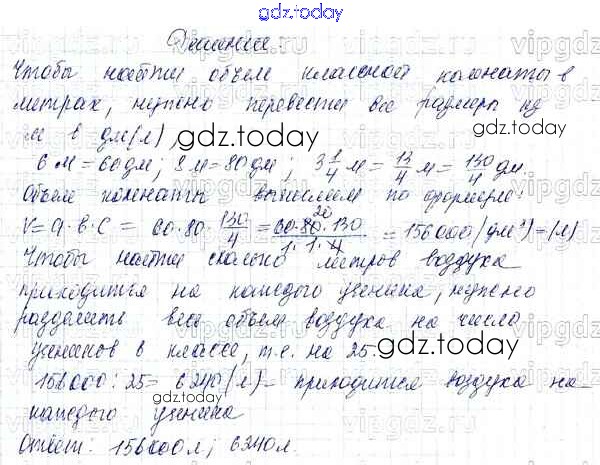 gdz.today
Решение
Чтобы найти объем классной комнаты в
метрах, нужно перевести все размеры из
м в дм(л),
gdz.today
6 м = 60 дм; 8 м = 80 дм; 3 1/4 м = 13/4 м = 130/4 дм.
Объем комнаты вычисляем по формуле:
V = a · b · c = 60 · 80 · 130/4 = 60 · 80 · 130 / 1 · 1 · 4 = 156000 (дм³) = (л)
20
Чтобы найти сколько литров воздуха
приходится на каждого ученика, нужно
разделить весь объем воздуха на число
учеников в классе, т.е. на 25.
gdz.today
156000 : 25 = 6240 (л) – приходится воздуха на
каждого ученика
gdz.today
Ответ: 156000 л; 6240 л.